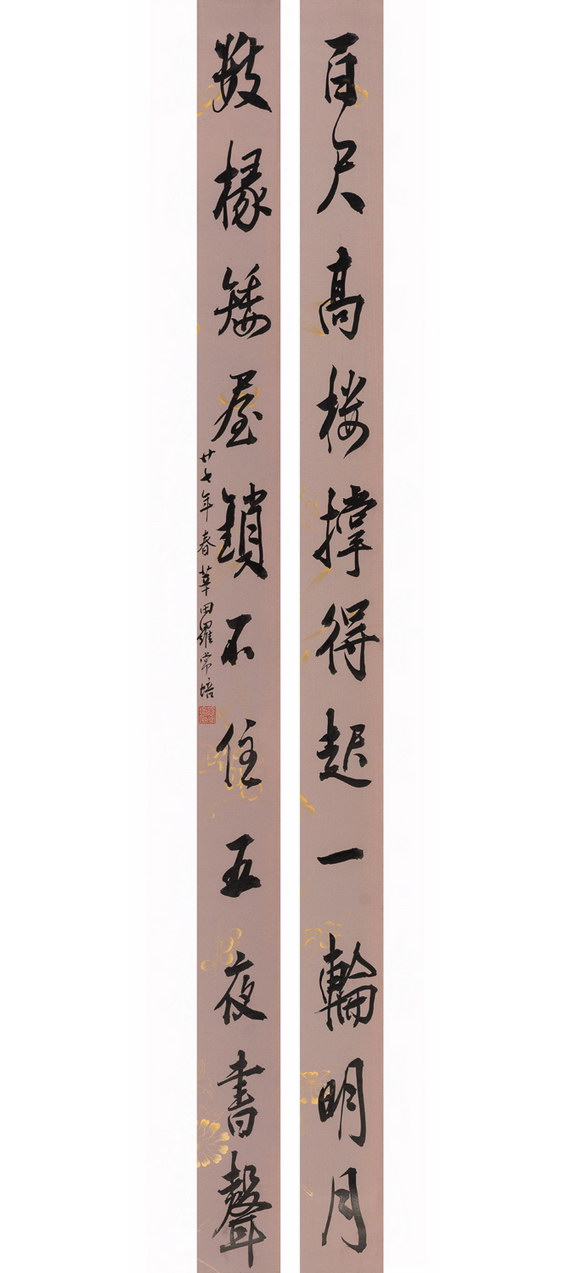 百尺高楼撑得起一輪明月
数椽矮屋鎖不住五夜書聲
廿七年春莘田羅常培